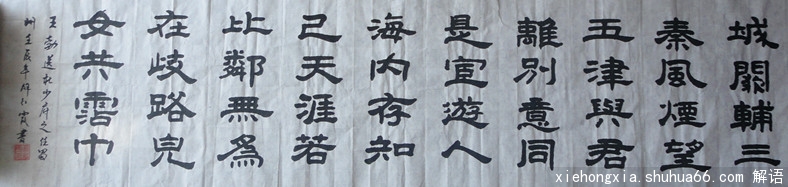 城闕輔三
秦風煙望
五津與君
離別意同
是宦遊人
海内存知
己天涯若
比鄰無為
在歧路兒
女共霑巾
王勃送杜少府之任蜀
州壬辰年解红霞書
xiehongxia.shuhua66.com 解语